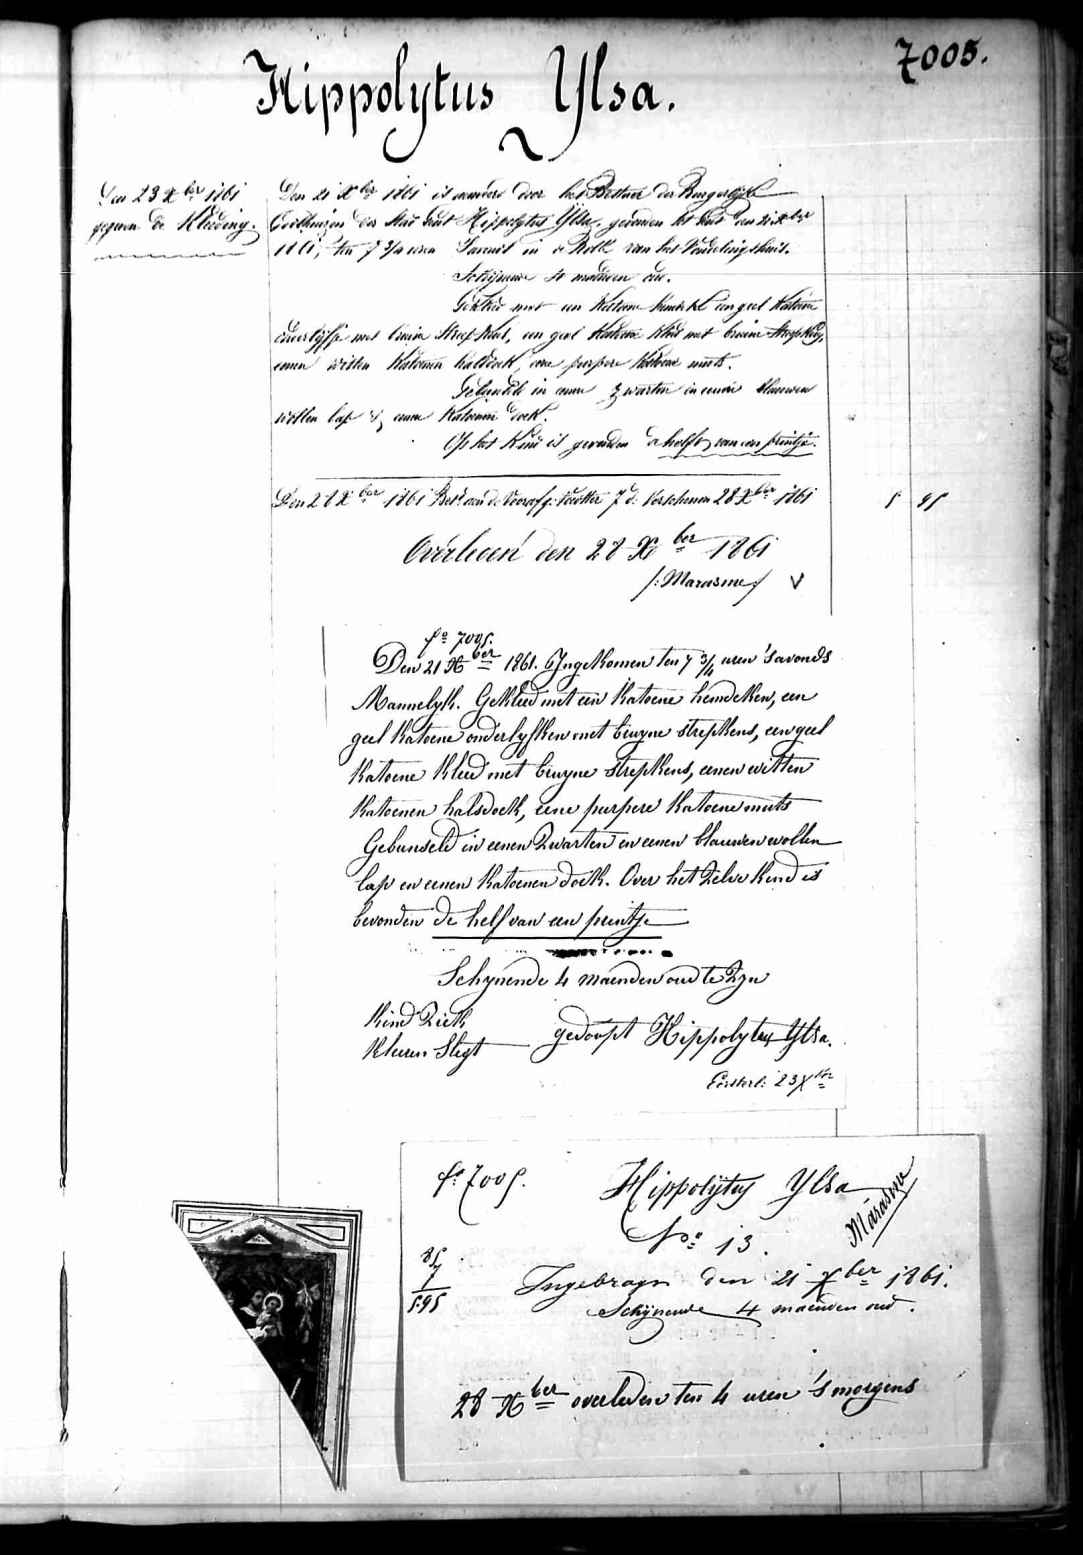 7005.
Hippolytus Ylsa.
Den 23 Xber 1861
gegeven de Kleeding.
Den 21 Xber 1861 is door het Bestuur der Burgerlijke
Godshuizen der Stad Hippolytus Ylsa, gevonden het kind den 21 Xber
1861, ten 7 3/4 uren 'savonds in de Rolle van het Vondelingshuis.
Schijnende 4 maenden oud.
Gekleed met een Katoene hemdeke een geel Katoene
onderlyfje met bruin Streepkens, een geel Katoene kleed met bruine Streepkens,
eenen witten Katoenen halsdoek, eene purpere Katoene muts.
Gebundeld in eenen zwarten en eenen blauwen
wollen lap & eenen Katoenen doek.
Op het Kind is gevonden de helft van een printje.
Den 28 Xber 1861 Bet. aan de Voorafg. Voedster 7 d. Verschenen 28 Xber 1861 5 95
Overleden den 28 Xber 1861
/: Marasme :/ V
fo 7005.
Den 21 Xber 1861. Ingekomen ten 7 3/4 uren 'savonds
Mannelyk. Gekleed met een Katoene hemdeken, een
geel Katoene onderlyfken met bruyne strepkens, een geel
Katoene Kleed met bruyne strepkens, eenen witten
Katoenen halsdoek, eene purpere Katoene muts
Gebunseld in eenen Zwarten en eenen blauwen wollen
lap en eenen Katoenen doek. Over het Zelve Kend is
bevonden de helf van een prentje
Schynende 4 maenden oud te Zyn
Kind Ziek
Kleeren Slegt
gedoopt Hippolytus Ylsa.
23 Xber
fo 7005.
Hippolytus Ylsa
Marasme
No 13.
85
7
5.95
Ingebragt den 21 Xber 1861.
Schijnende 4 maenden oud.
28 Xber overleden ten 4 uren 's morgens